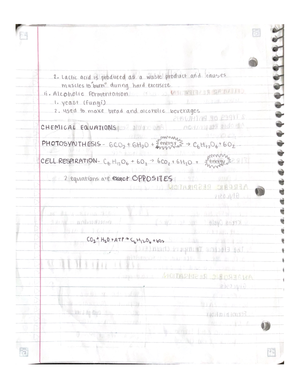 2. Lactic acid is produced as a waste product and causes
muscles to "burn" during hard exercise.
ii. Alcoholic Fermentation
1. yeast (fungi)
2. used to make bread and alcoholic beverages
CHEMICAL EQUATIONS:
PHOTOSYNTHESIS - 6CO2 + 6H2O + energy → C6H12O6 + 6O2
CELL RESPIRATION: C6H12O6 + 6O2 → 6CO2 + 6H2O + energy
2 equations are exact OPPOSITES
CO2 + H2O + ATP → C6H12O6 + 6O2